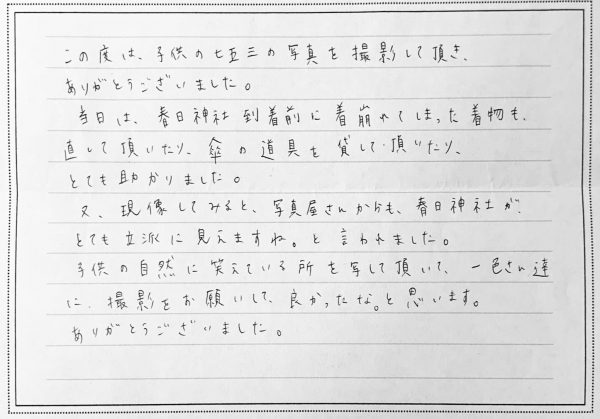 この度は、子供の七五三の写真を撮影して頂き、
ありがとうございました。
当日は、春日神社到着前に着崩れてしまった着物も、
直して頂いたり、傘の道具を貸して頂いたり、
とても助かりました。
又、現像してみると、写真屋さんからも、春日神社が、
とても立派に見えますね。と言われました。
子供の自然に笑えている所を写して頂いて、一色さん達
に、撮影をお願いして、良かったな。と思います。
ありがとうございました。